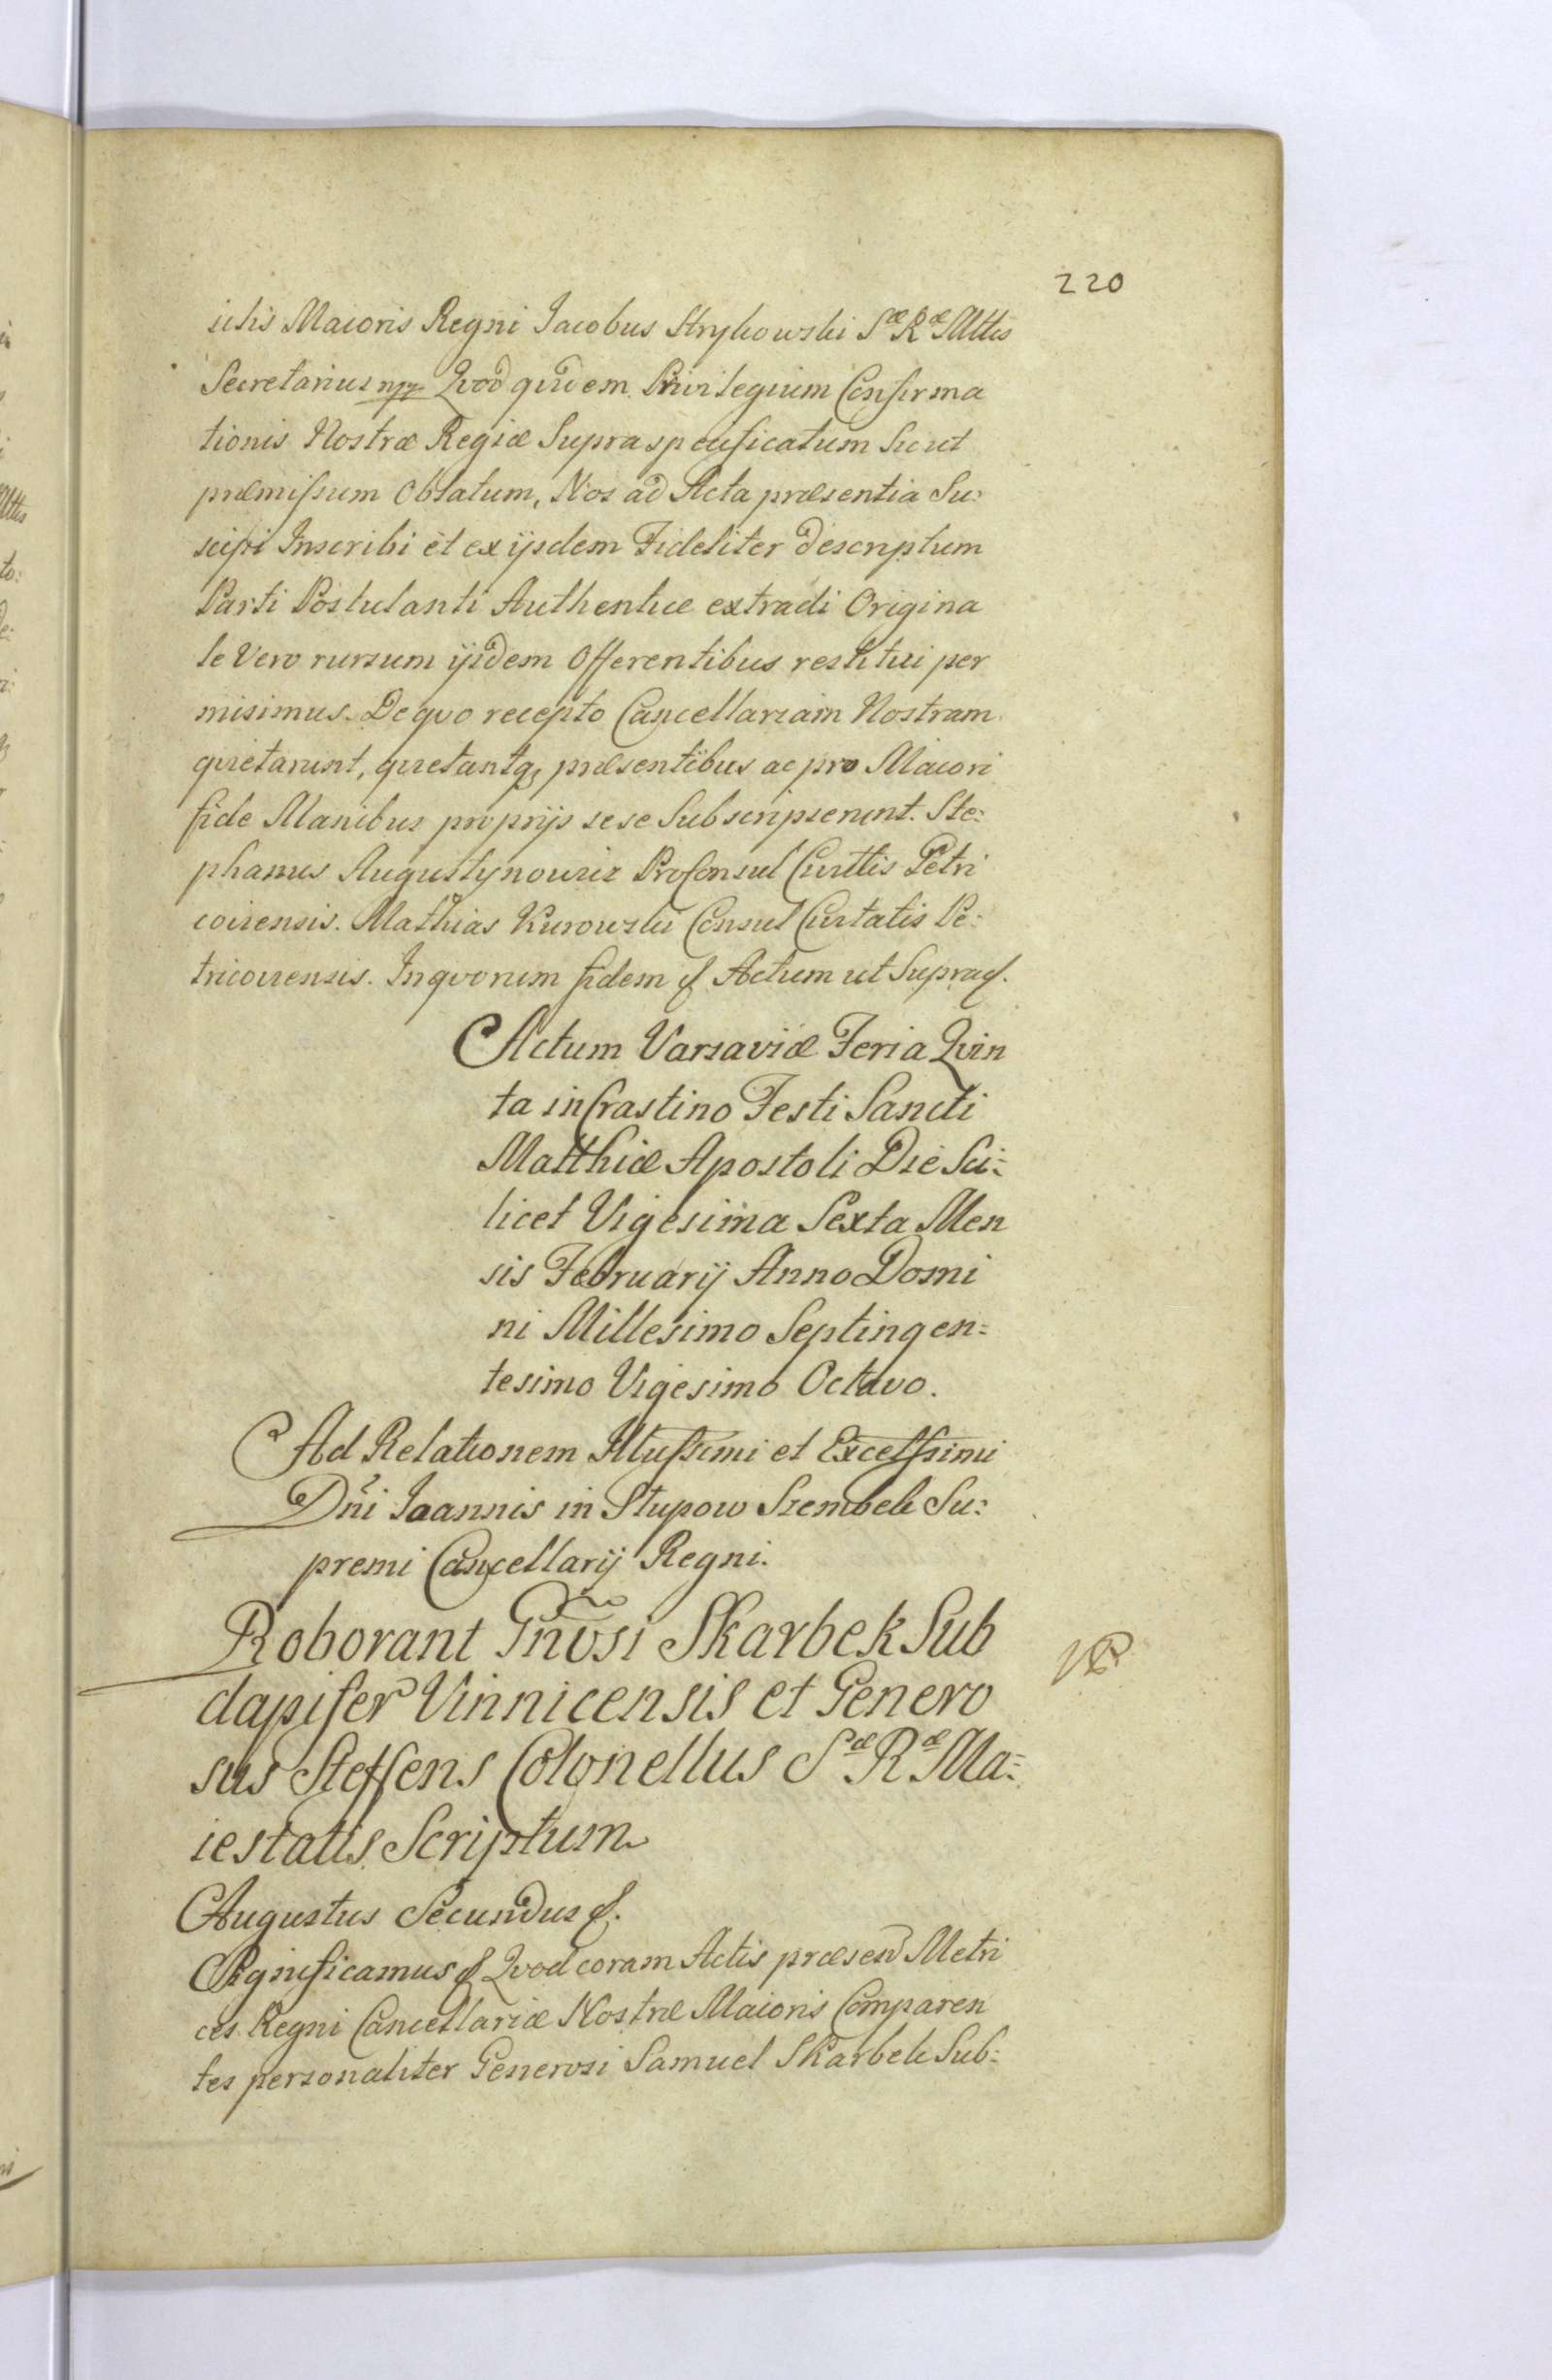 220
ichis Maioris Regni Iacobus Strykowski Sæ Ræ Mttis
Secretarius mpp Qvod qvidem Privilegium Confirma
tionis Nostræ Regiæ Supra specificatum Sicut
præmissum Oblatum, Nos ad Acta præsentia Su:
scipi Inscribi et ex ijsdem Fideliter descriptum
Parti Postulanti Authentice extradi Origina
le Vero rursum ijsdem Offerentibus restitui per
misimus. De qvo recepto Cancellariam Nostram
qvietarunt, qvietantq, præsentibus ac pro Maiori
fide Manibus proprijs sese Subscripserunt. Ste:
phanus Augustynowicz ProConsul Civittis Petri
coviensis. Mathias Kurowski Consul Civitatis Pe:
tricoviensis. In qvorum fidem &. Actum ut Supra &.
Actum Varsaviæ Feria Qvin
ta in Crastino Festi Sancti
Matthiæ Apostoli Die Sci:
licet Vigesima Sexta Men
sis Februarij Anno Domi
ni Millesimo Septingen:
tesimo Vigesimo Octavo.
Ad Relationem Illussimi et Excelssimi
Dni Ioannis in Słupow Szembek Su:
premi Cancellarij Regni.
Roborant Gnosi Skarbek Sub
dapifer Vinnicensis et Genero
sus Steffens Colonellus Sæ Ræ Ma:
iestatis Scriptum
Augustus Secundus &.
Significamus & Qvod coram Actis præsen Metri
ces Regni Cancellariæ Nostræ Maioris Comparen
tes personaliter Generosi Samuel Skarbek Sub: